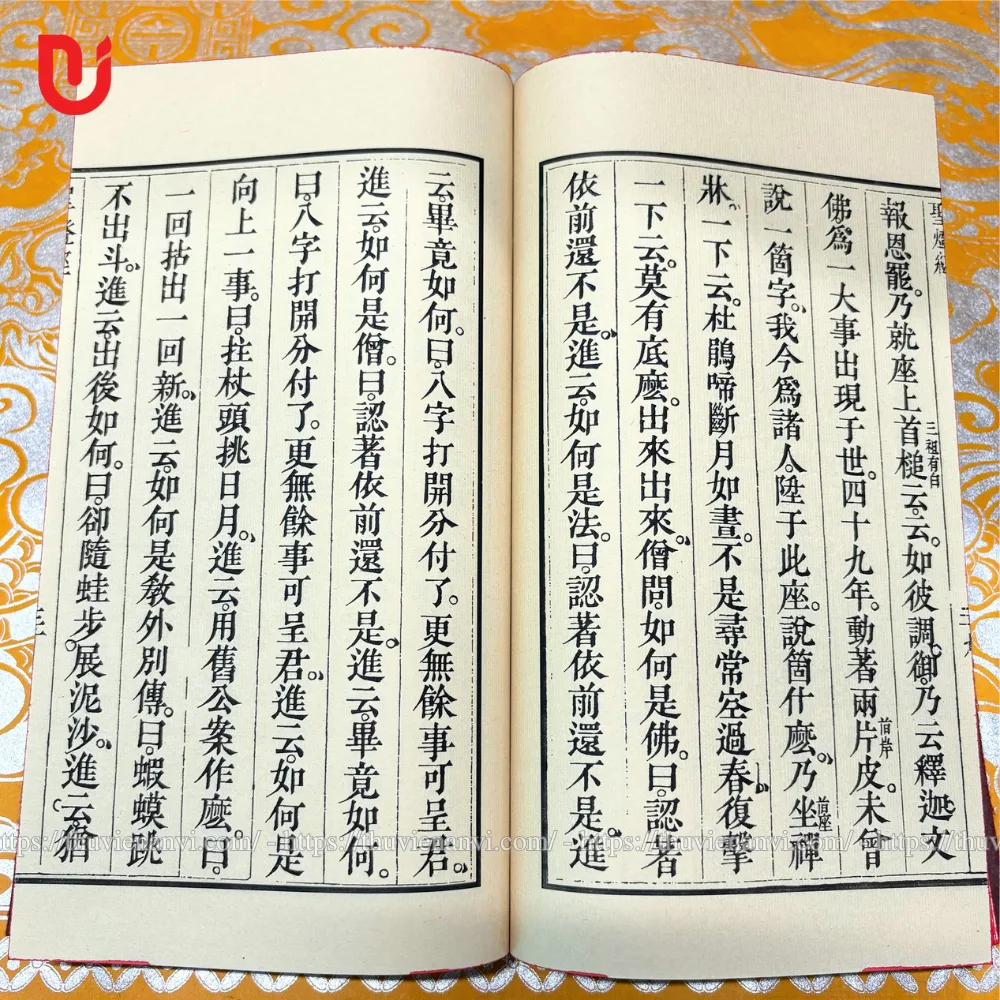 聖燈
報恩罷。乃就座上首槌云云。如彼調御。乃云釋迦文
三祖有白
佛爲一大事出現于世。四十九年。動著兩片皮。未曾
說一箇字。我今爲諸人。陞于此座。說箇什麽。乃坐禪
牀。一下云。杜鵑啼斷月如晝。不是尋常空過春。復擊
一下云。莫有底麽。出來出來。僧問。如何是佛。曰。認著
依前還不是。進云。如何是法。曰。認著依前還不是。進
云。畢竟如何。曰。八字打開分付了。更無餘事可呈君。
進云。如何是僧。曰。認著依前還不是。進云。畢竟如何。
曰。八字打開分付了。更無餘事可呈君。進云。如何是
向上一事。曰。拄杖頭挑日月。進云。用舊公案作麽。曰。
一回拈出一回新。進云。如何是教外別傳。曰。蝦蟆跳
不出斗。進云。出後如何。曰。卻隨蛙步。展泥沙。進云。猶
https://thuvienanvi.com/ - https://thuvienanvi.com/ - https://thuvienanvi.com/